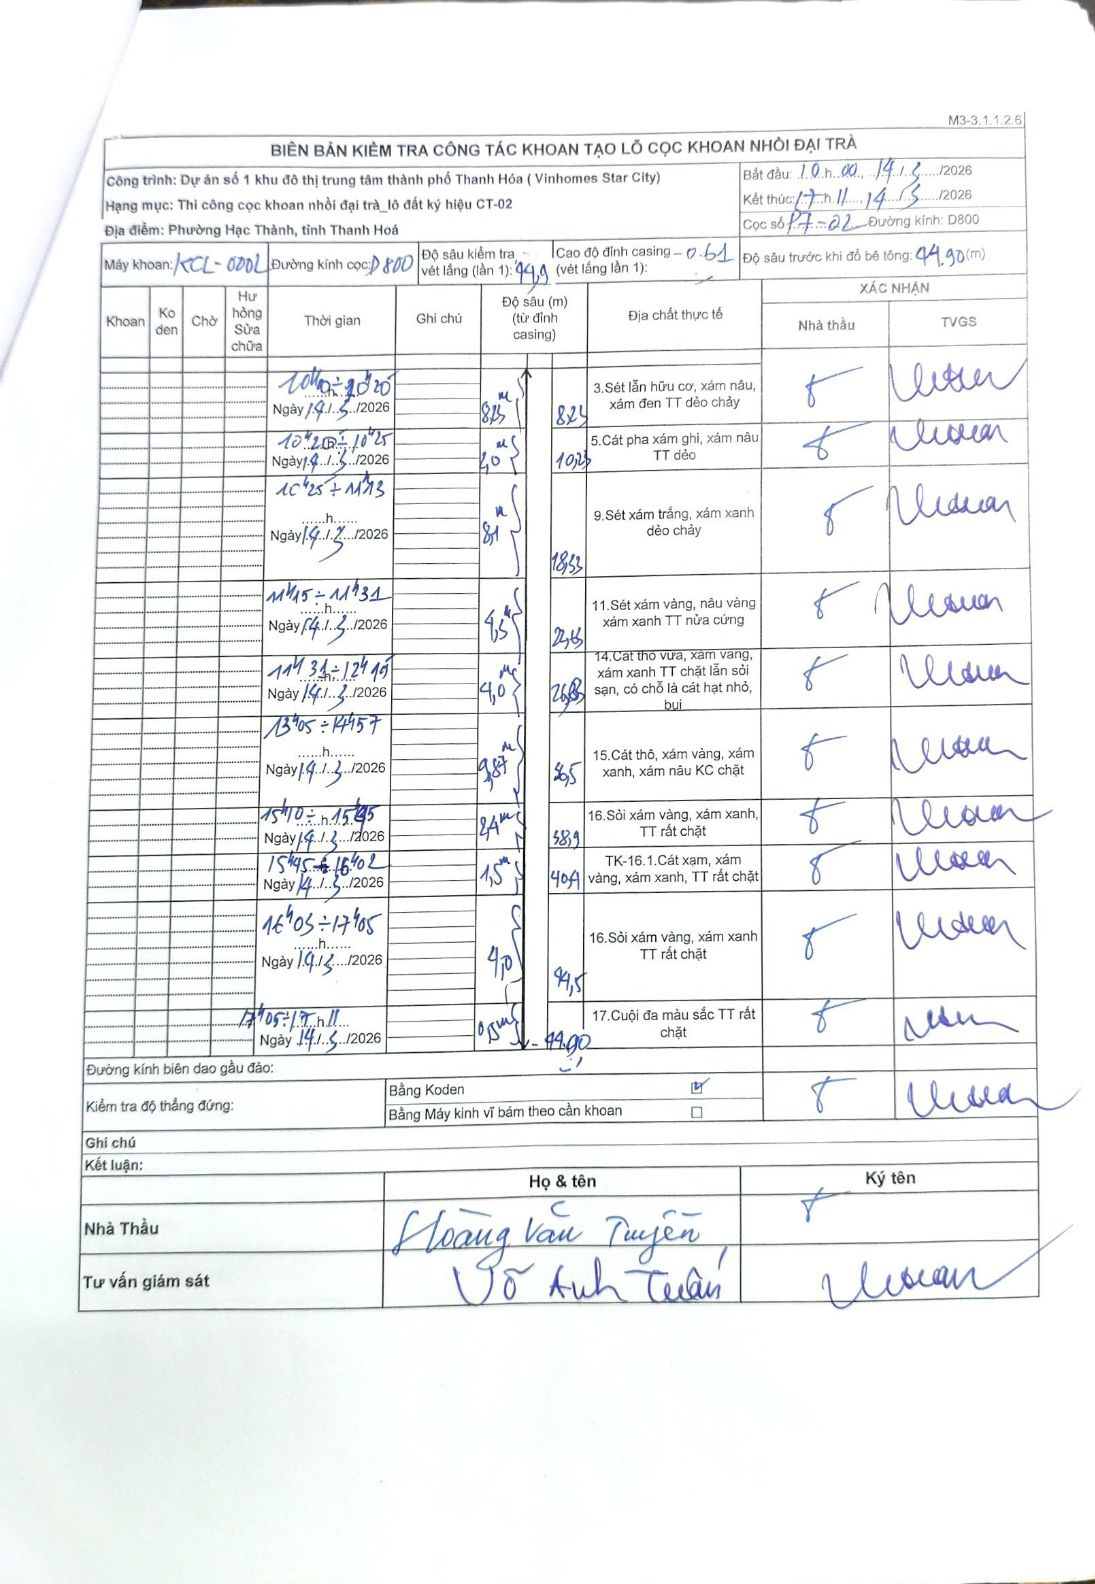 M3-3.1.1.2.6
BIÊN BẢN KIỂM TRA CÔNG TÁC KHOAN TẠO LỖ CỌC KHOAN NHỒI ĐẠI TRÀ
Công trình: Dự án số 1 khu đô thị trung tâm thành phố Thanh Hóa ( Vinhomes Star City)
Hạng mục: Thi công cọc khoan nhồi đại trà_lô đất ký hiệu CT-02
Địa điểm: Phường Hạc Thành, tỉnh Thanh Hoá
Bắt đầu: 10.h..00., ..14./.3...../2026
Kết thúc: 17.h 11..., 14.../.3...../2026
Cọc số P7-02 Đường kính: D800
Máy khoan: KCL-0002 Đường kính cọc: D800
Độ sâu kiểm tra vét lắng (lần 1): 44,9
Cao độ đỉnh casing -0.61
(vét lắng lần 1):
Độ sâu trước khi đổ bê tông: 44.90 (m)
Khoan
Ko đen
Chờ
Hư hỏng Sửa chữa
Thời gian
Ghi chú
Độ sâu (m) (từ đỉnh casing)
Địa chất thực tế
XÁC NHẬN
Nhà thầu
TVGS
Ngày 14./.3.../2026
8,23
8,23
3.Sét lẫn hữu cơ, xám nâu, xám đen TT dẻo chảy
10h20÷10h25
Ngày 14./.3.../2026
2,0
10,23
5.Cát pha xám ghi, xám nâu TT dẻo
10h25÷11h13
......h......
Ngày 14./.3.../2026
8,1
18,33
9.Sét xám trắng, xám xanh dẻo chảy
11h15÷11h31
......h......
Ngày 14./.3.../2026
4,5
11.Sét xám vàng, nâu vàng xám xanh TT nửa cứng
11h31÷12h15
Ngày 14./.3.../2026
4,0
14.Cát thô vừa, xám vàng, xám xanh TT chặt lẫn sỏi sạn, có chỗ là cát hạt nhỏ, bụi
13h05÷14h57
......h......
Ngày 14./.3.../2026
9,87
36,5
15.Cát thô, xám vàng, xám xanh, xám nâu KC chặt
15h10÷15h45
Ngày 14./.3.../2026
2,4m
38,9
16.Sỏi xám vàng, xám xanh, TT rất chặt
15h45÷16h02
Ngày 14./.3.../2026
1,5m
40,4
TK-16.1.Cát xạm, xám vàng, xám xanh, TT rất chặt
16h03÷17h05
......h......
Ngày 14./.3.../2026
4,0
44,5
16.Sỏi xám vàng, xám xanh TT rất chặt
17h05÷17.h 11...
Ngày 14./.3.../2026
0,5m
44.90
17.Cuội đa màu sắc TT rất chặt
Đường kính biên dao gầu đào:
Kiểm tra độ thẳng đứng:
Bằng Koden ☑
Bằng Máy kinh vĩ bám theo cần khoan ☐
Ghi chú
Kết luận:
Họ & tên
Ký tên
Nhà Thầu
Hoàng Văn Tuyền
Tư vấn giám sát
Võ Anh Tuấn